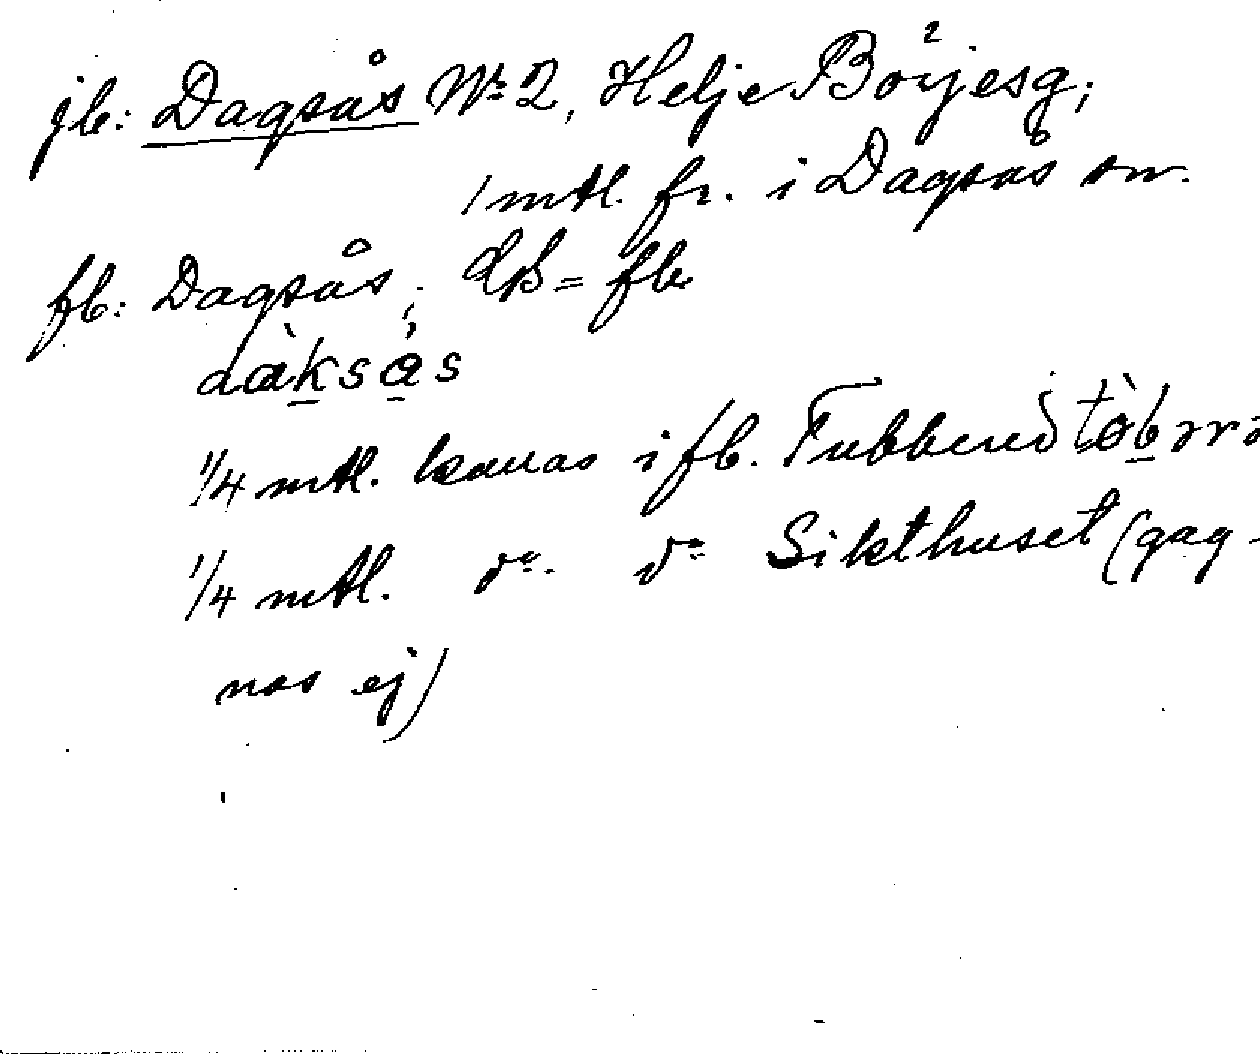 jb: Dagsås No 2, Helje Börjesg;
1 mtl. fr. i Dagsås sn.
fb: Dagsås; = fb
dàksås
1/4 mtl. kauas i fb. Tubbered
1/4 mtl. do. do Sikthuset (gag-
nas ej)